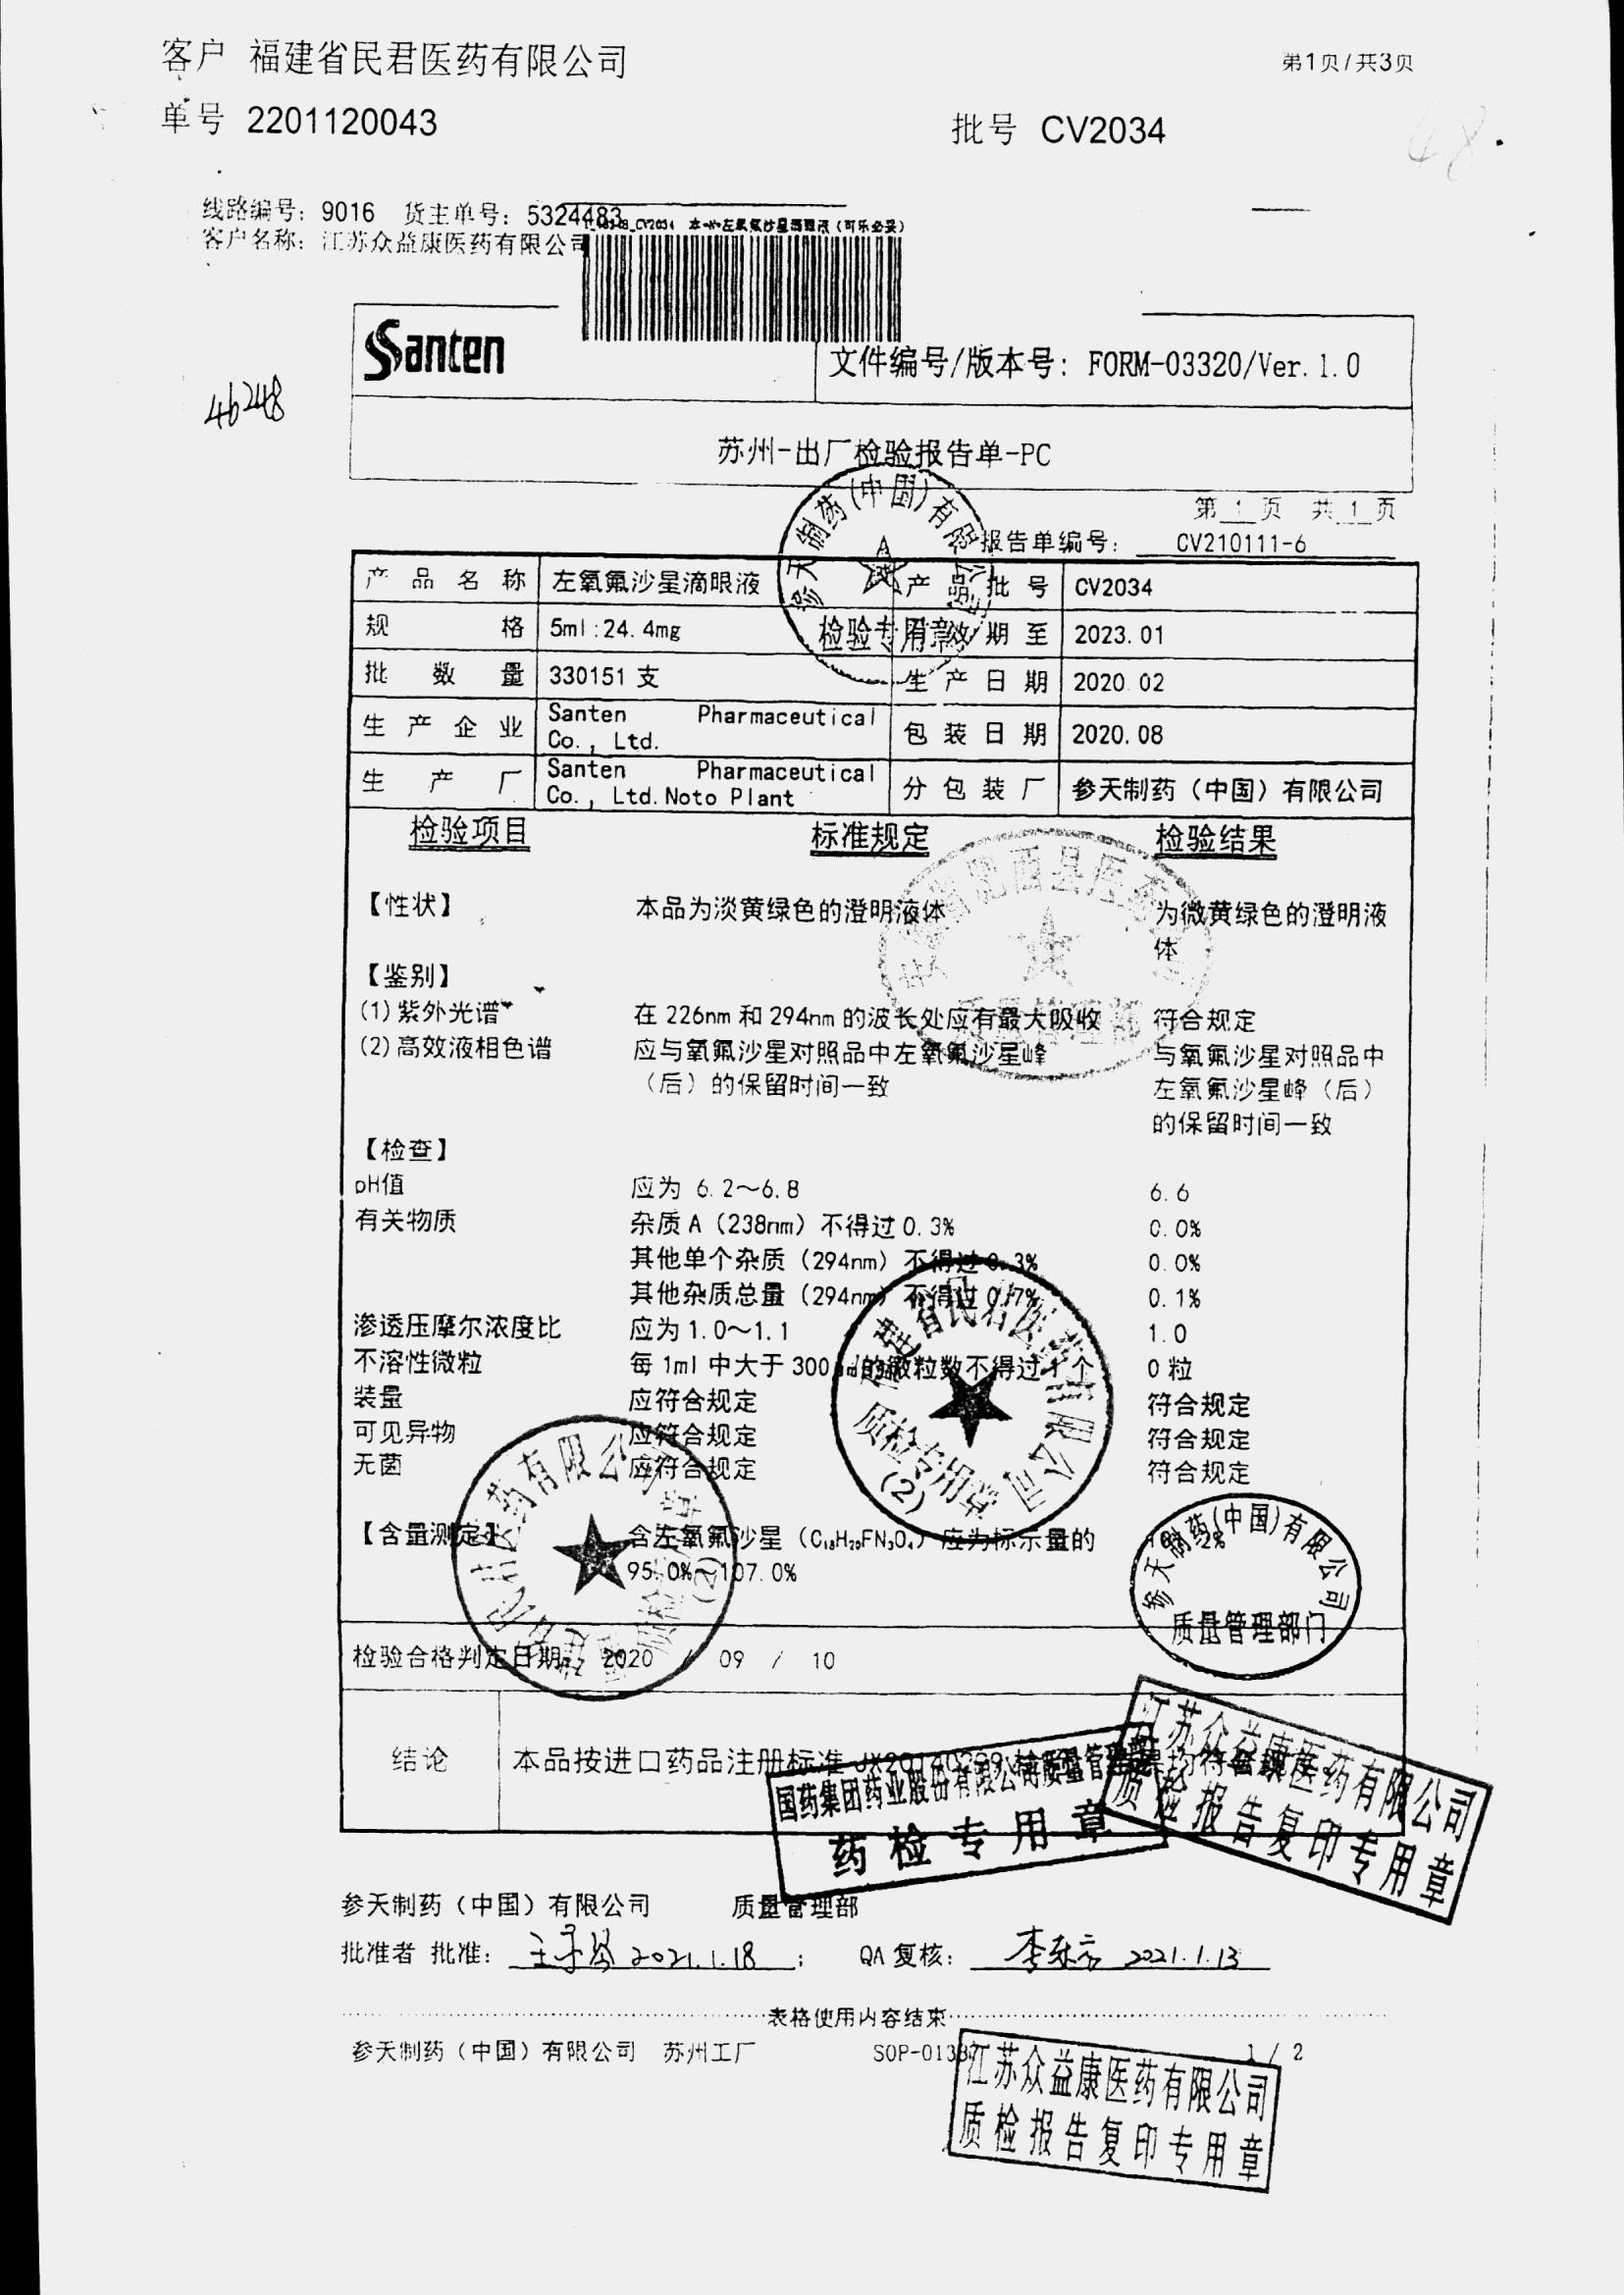 客户 福建省民君医药有限公司
第1页/共3页
单号 2201120043
批号 CV2034
线路编号: 9016 货主单号: 5324483
客户名称: 江苏众益康医药有限公司
CV2034 左氧氟沙星滴眼液(可乐必妥)
Santen
文件编号/版本号: FORM-03320/Ver.1.0
46248
苏州-出厂检验报告单-PC
第 1 页 共 1 页
报告单编号: CV210111-6
参天制药(中国)有限公司
检验专用章
产品名称 左氧氟沙星滴眼液 产品批号 CV2034
规格 5ml:24.4mg 有效期至 2023.01
批数量 330151 支 生产日期 2020.02
生产企业 Santen Pharmaceutical Co., Ltd. 包装日期 2020.08
生产厂 Santen Pharmaceutical Co., Ltd. Noto Plant 分包装厂 参天制药(中国)有限公司
检验项目 标准规定 检验结果
【性状】 本品为淡黄绿色的澄明液体 为微黄绿色的澄明液
体
【鉴别】
(1)紫外光谱 在 226nm 和 294nm 的波长处应有最大吸收 符合规定
(2)高效液相色谱 应与氧氟沙星对照品中左氧氟沙星峰 与氧氟沙星对照品中
(后)的保留时间一致 左氧氟沙星峰(后)
的保留时间一致
【检查】
pH值 应为 6.2～6.8 6.6
有关物质 杂质 A(238nm)不得过 0.3% 0.0%
其他单个杂质(294nm)不得过 0.3% 0.0%
其他杂质总量(294nm)不得过 0.7% 0.1%
渗透压摩尔浓度比 应为 1.0～1.1 1.0
不溶性微粒 每 1ml 中大于 300μm的微粒数不得过 1 个 0 粒
装量 应符合规定 符合规定
可见异物 应符合规定 符合规定
无菌 应符合规定 符合规定
福建省民君医药有限公司
质检专用章
(2)
【含量测定】 含左氧氟沙星(C₁₈H₂₀FN₃O₄)应为标示量的
95.0%～107.0%
参天制药(中国)有限公司
质量管理部门
检验合格判定日期: 2020 / 09 / 10
结论 本品按进口药品注册标准
国药集团药业股份有限公司质量管理部
药检专用章
江苏众益康医药有限公司
质检报告复印专用章
参天制药(中国)有限公司 质量管理部
批准者 批准: 2021.1.18 ; QA 复核: 2021.1.13
表格使用内容结束
参天制药(中国)有限公司 苏州工厂 SOP-0133 1 / 2
江苏众益康医药有限公司
质检报告复印专用章